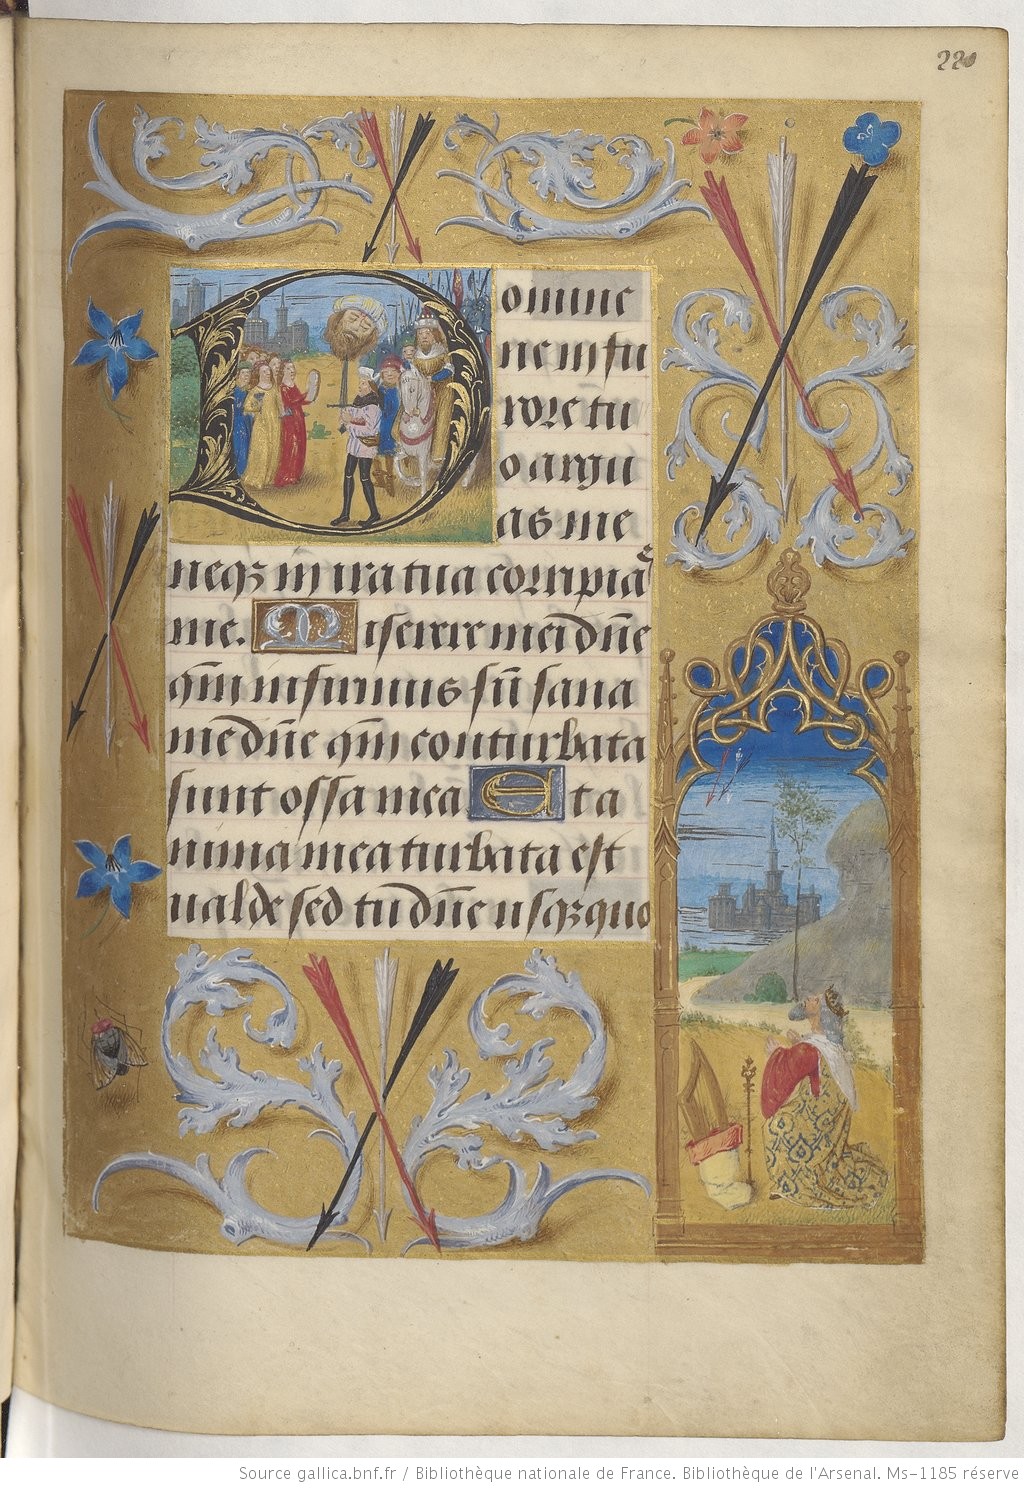 220
Domine
ne in fu
rore tu
o argu
as me
neqꝫ in ira tua corripiã
me. Miserere mei dñe
qm̃ infirmus sũ sana
me dñe qm̃ conturbata
sunt ossa mea Et a
nima mea turbata est
ualde sed tu dñe usqꝫquo
Source gallica.bnf.fr / Bibliothèque nationale de France. Bibliothèque de l'Arsenal. Ms-1185 réserve